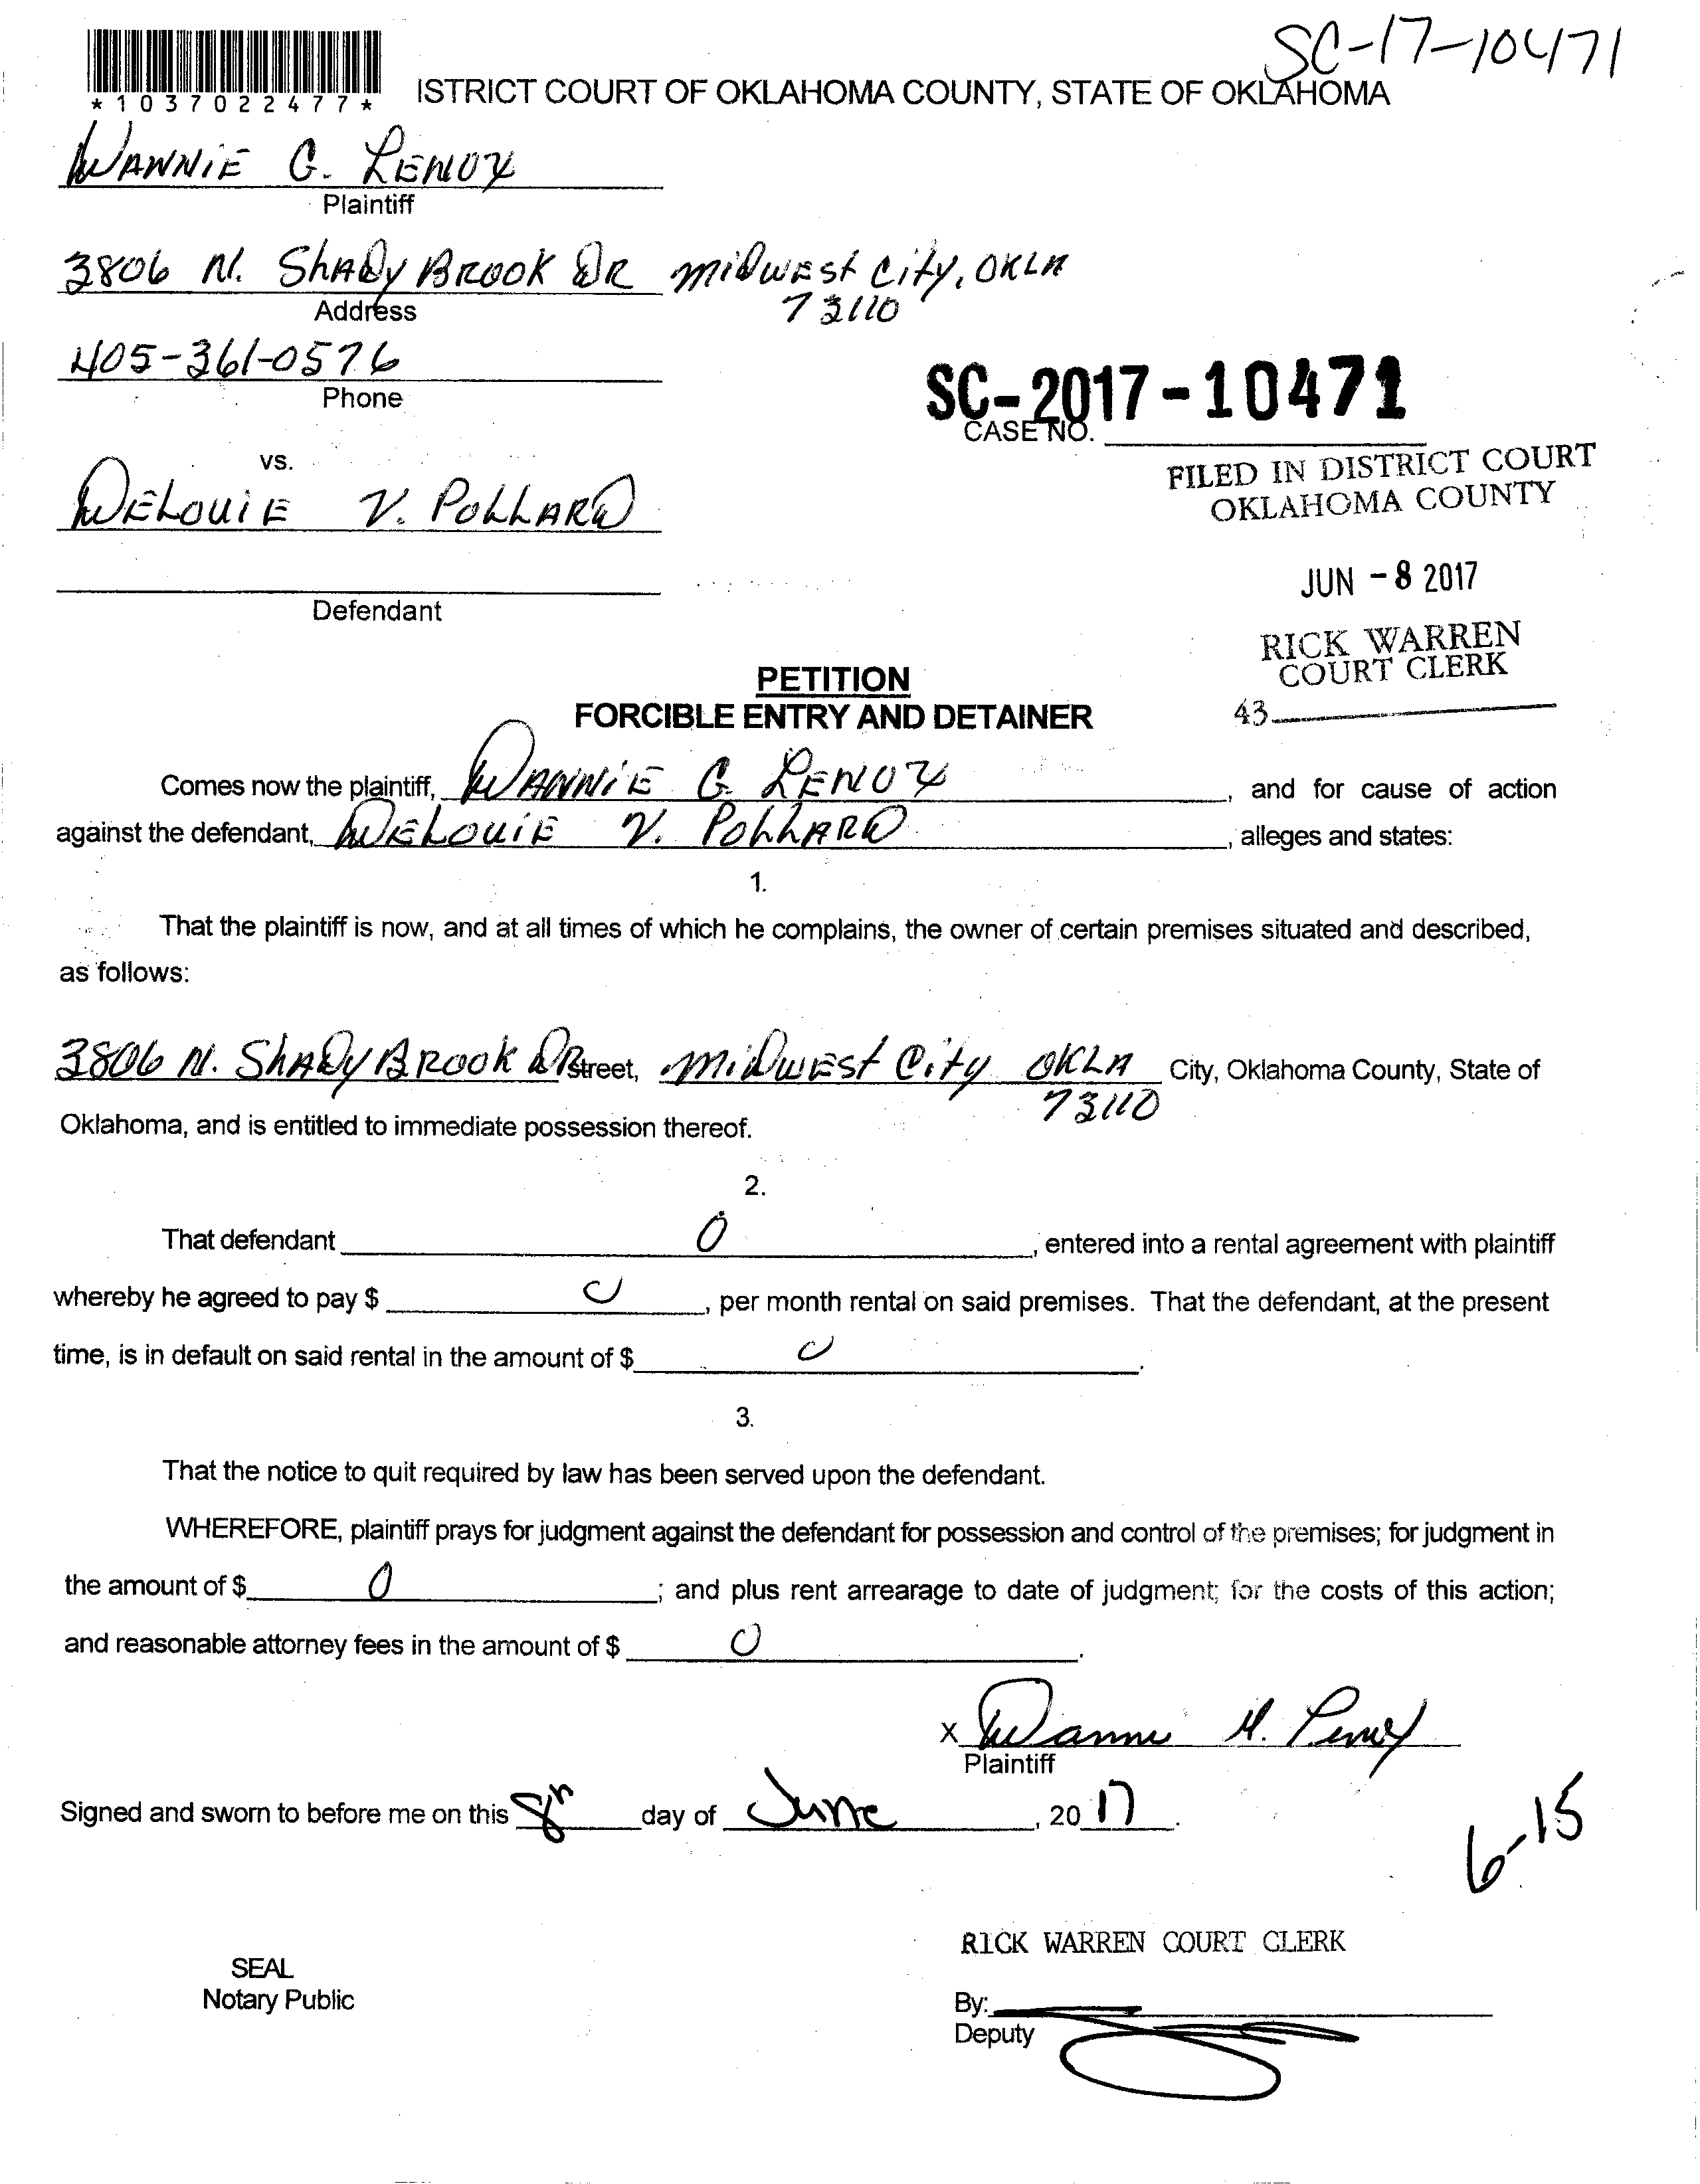 SC-17-10471
*1037022477*
ISTRICT COURT OF OKLAHOMA COUNTY, STATE OF OKLAHOMA
DANNIE G. LENOX
Plaintiff
3806 N. SHADY BROOK DR MIDWEST City, OKLA
Address 73110
405-361-0576
Phone
SC-2017-10471
CASE NO.
vs.
FILED IN DISTRICT COURT
OKLAHOMA COUNTY
DELOUIE V. POLLARD
JUN -8 2017
Defendant
RICK WARREN
COURT CLERK
43
PETITION
FORCIBLE ENTRY AND DETAINER
Comes now the plaintiff, DANNIE G. LENOX, and for cause of action
against the defendant, DELOUIE V. POLLARD, alleges and states:
1.
That the plaintiff is now, and at all times of which he complains, the owner of certain premises situated and described,
as follows:
3806 N. SHADY BROOK DR Street, MIDWEST City OKLA City, Oklahoma County, State of
73110
Oklahoma, and is entitled to immediate possession thereof.
2.
That defendant 0, entered into a rental agreement with plaintiff
whereby he agreed to pay $ 0, per month rental on said premises. That the defendant, at the present
time, is in default on said rental in the amount of $ 0.
3.
That the notice to quit required by law has been served upon the defendant.
WHEREFORE, plaintiff prays for judgment against the defendant for possession and control of the premises; for judgment in
the amount of $ 0; and plus rent arrearage to date of judgment; for the costs of this action;
and reasonable attorney fees in the amount of $ 0.
X Dannie G. Lenox
Plaintiff
Signed and sworn to before me on this 8th day of June, 20 17.
6-15
RICK WARREN COURT CLERK
SEAL
Notary Public
By:
Deputy